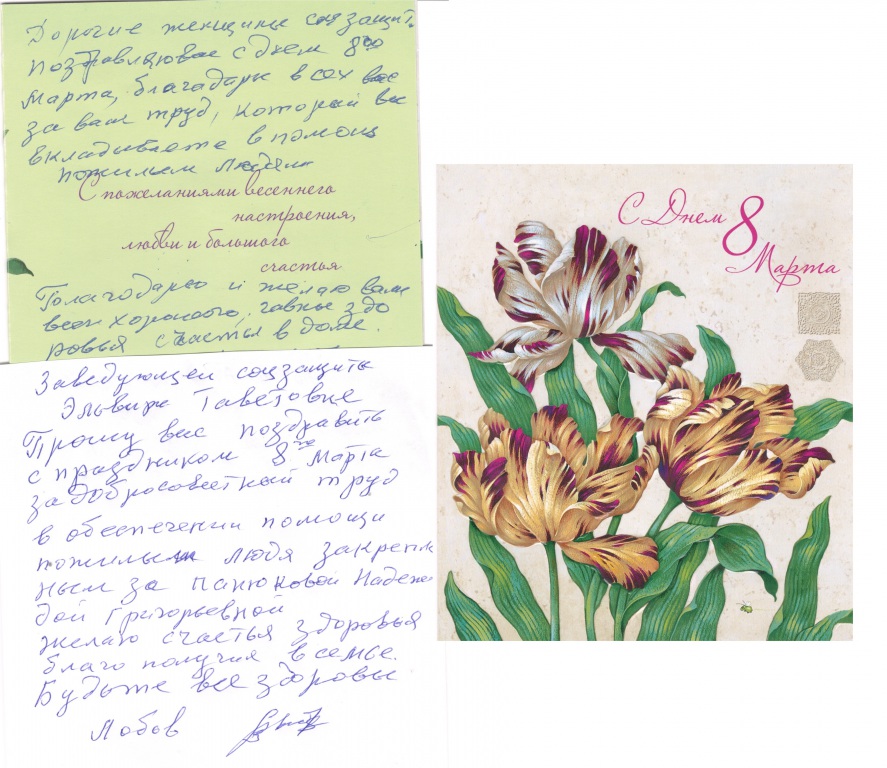 Дорогие женщины соцзащит.
Поздравляювас с днем 8го
марта, благадарю всех вас
за ваш труд, который вы
вкладываете в помощ
пожилым людям
С пожеланиями весеннего
настроения,
любви и большого
счастья
Благодарю и желаю вам
всем хорошого, главное здо
ровья счастья в доме.
Заведующей соцзащиты
Эльвире Таветовне
Прошу вас поздравить
с праздником 8го Марта
за добросовестный труд
в обеспечении помощи
пожилым людя закрепл
ным за Панюковой Надеж
дой Григорьевной
желаю счастья здоровья
благо получия в семье.
Будьте все здоровы
Лобов
С Днем
8
Марта